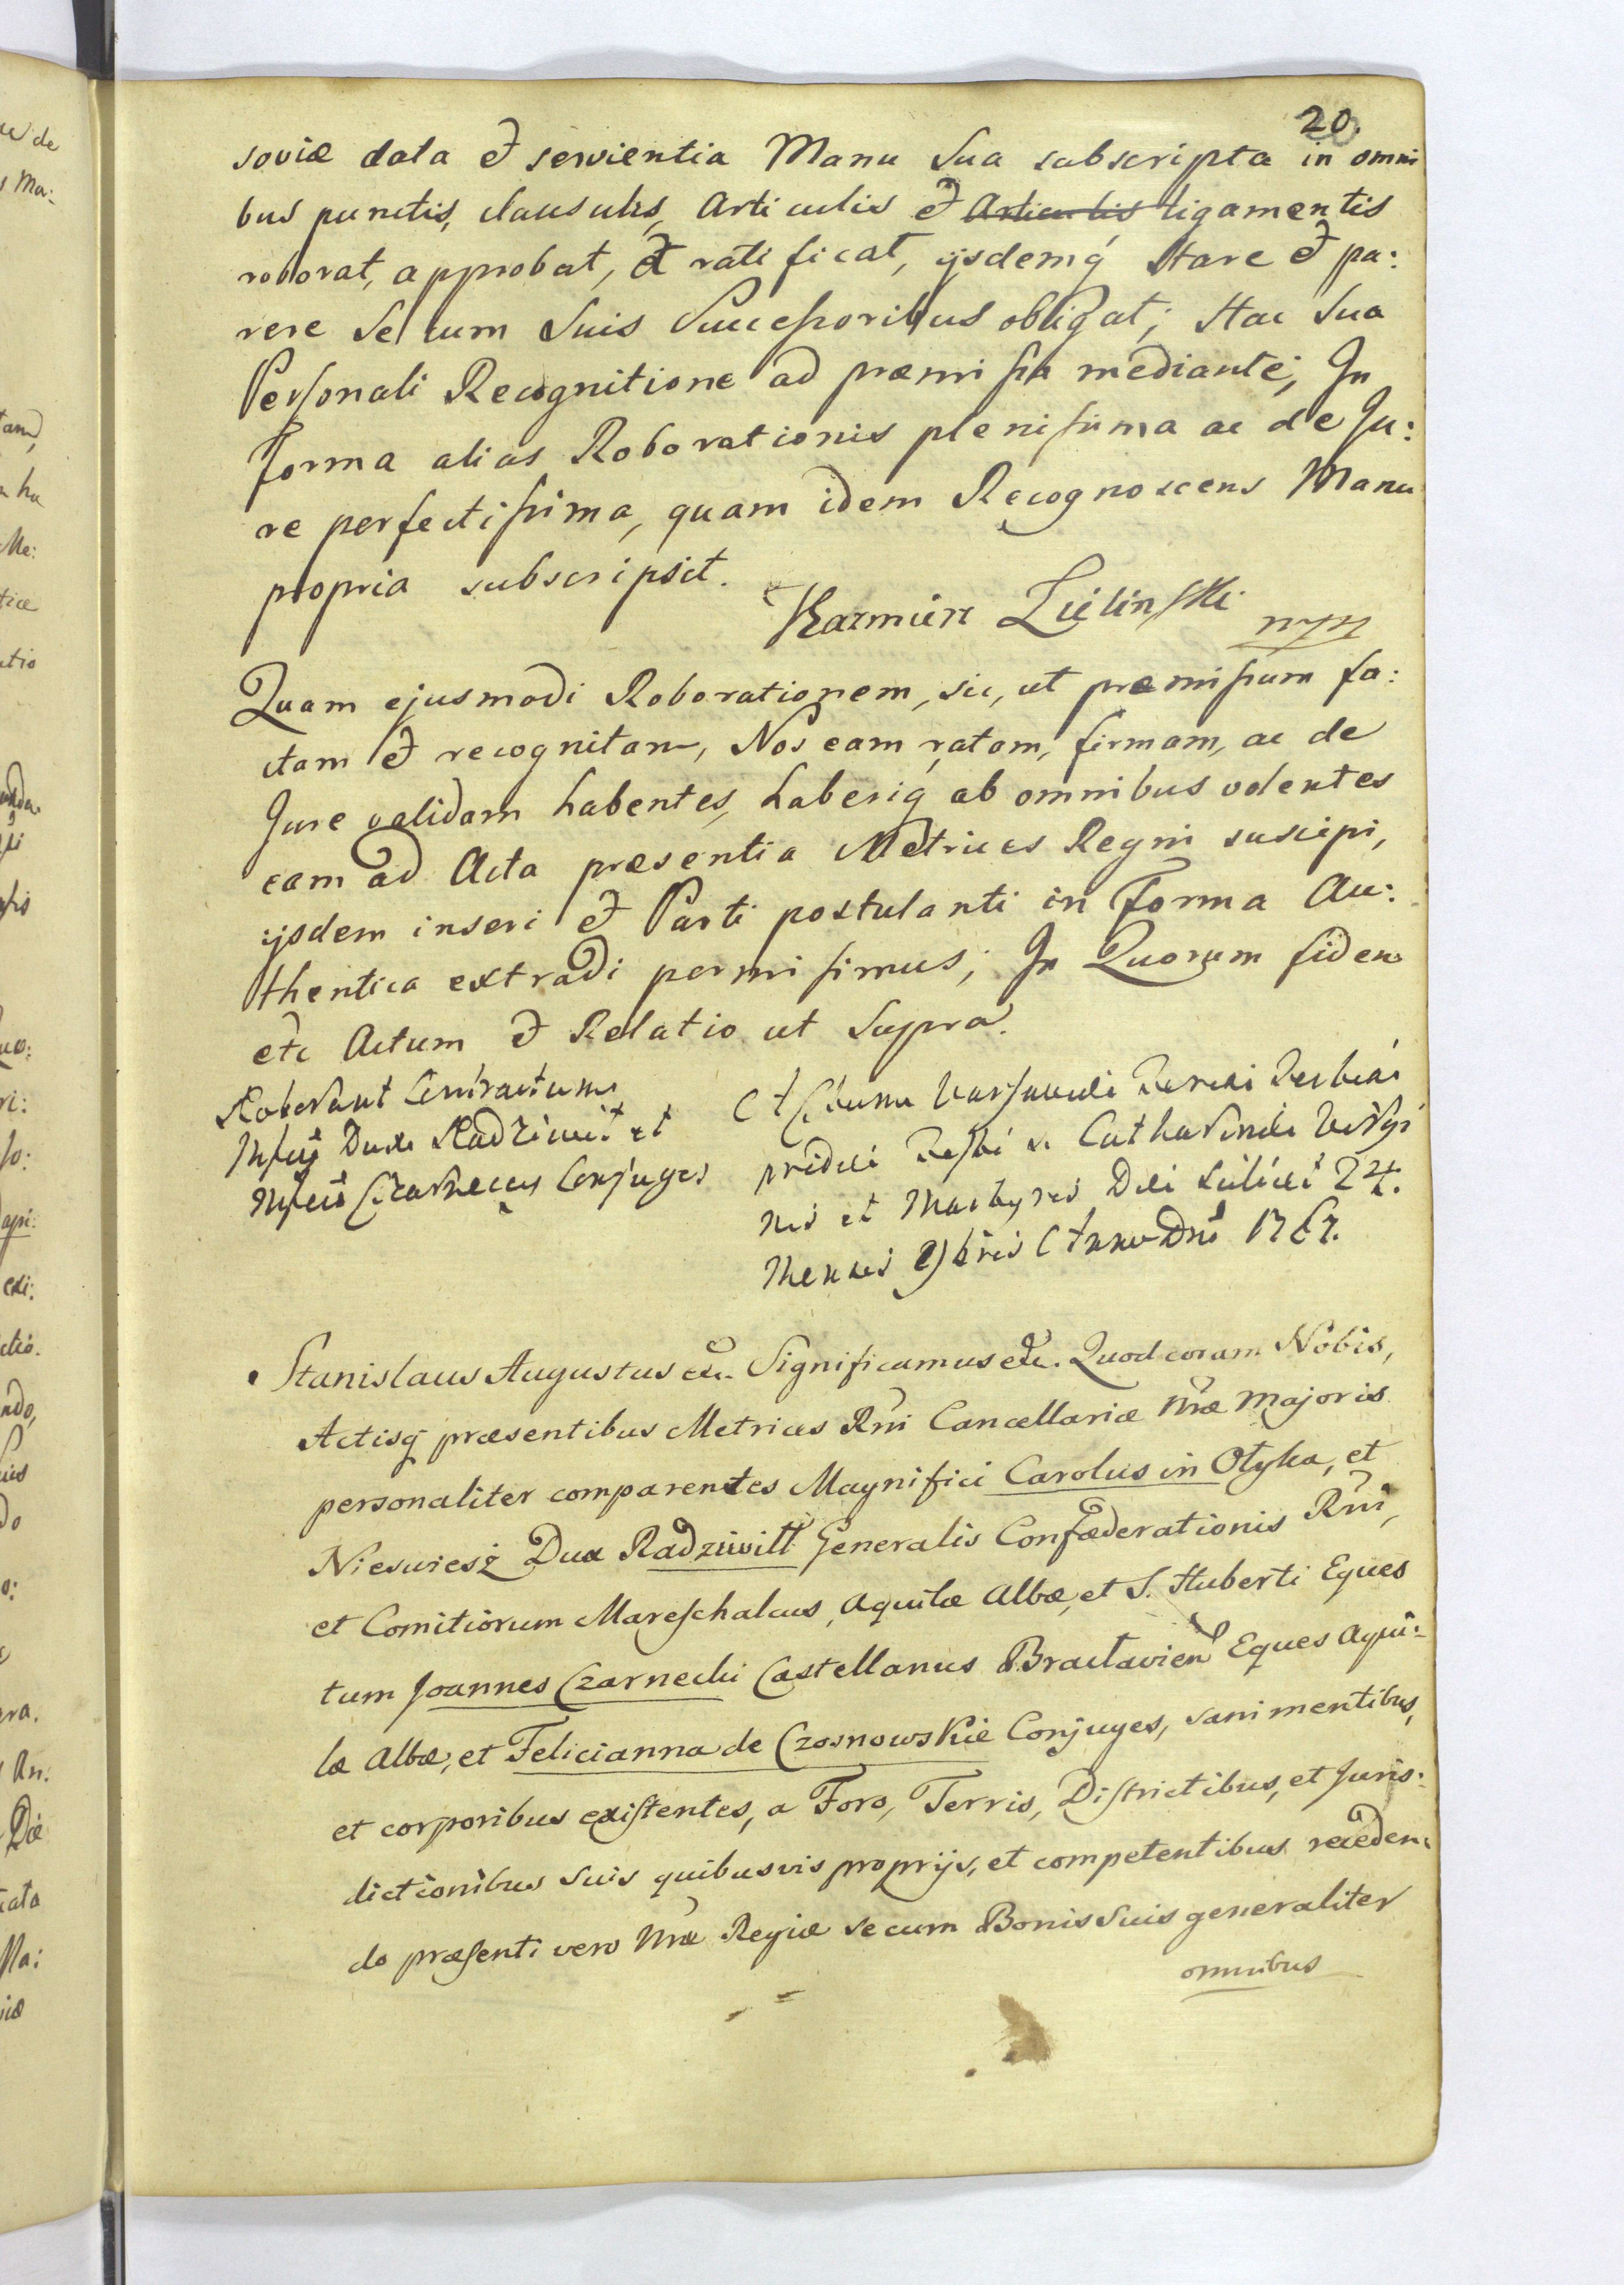 20.
soviæ data et servientia Manu Sua subscripta in omni
bus punctis, clausulis, Articulis et Articulis ligamentis
roborat, approbat, et ratificat, ijsdemq́ Stare et pa:
rere Se cum Suis Successoribus obligat; Hac Sua
Personali Recognitione ad præmissa mediante; In
forma alias Roborationis plenissima ac de Ju:
re perfectissima, quam idem Recognoscens Manu
propria subscripsit.
Kazmierz Zieliński mpp
Quam ejusmodi Roborationem, sic, ut præmissum fa:
ctam et recognitam, Nos eam ratam, firmam, ac de
Jure validam habentes, haberiq́ ab omnibus volentes
eam ad Acta præsentia Metrices Regni suscipi,
ijsdem inseri et Parti postulanti in Forma Au:
thentica extradi permisimus; In Quorum fidem
etc Actum et Relatio ut Supra.
Roborant Contractum
Mfcus Dux Radziwił et
Mfci Czarneccy Conjuges
Actum Varsaviæ Feria Tertia
pridie Festi S. Catharinæ Virgi
nis et Martyris Die scilicet 24.
Mensis 9bris Anno Dni 1767.
Stanislaus Augustus etc. Significamus etc. Quod coram Nobis,
Actisq́ præsentibus Metrices Rni Cancellariæ Nræ Majoris
personaliter comparentes Magnifici Carolus in Ołyka, et
Nieswiesż Dux Radziwiłł Generalis Confæderationis Rni,
et Comitiorum Mareschalcus, Aquilæ Albæ, et S. Huberti Eques
tum Joannes Czarnecki Castellanus Bractavien Eques Aqui:
læ Albæ, et Felicianna de Czosnowskie Conjuges, sani mentibus,
et corporibus existentes, a Foro, Terris, Districtibus, et Juris:
dictionibus Suis quibusvis proprijs, et competentibus receden:
do præsenti vero Nræ Regiæ se cum Bonis Suis generaliter
omnibus